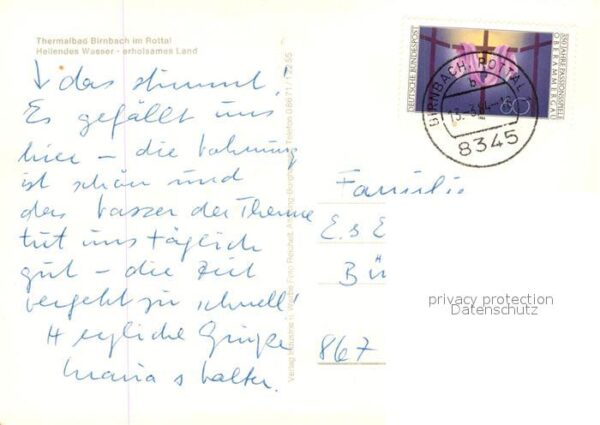 Thermalbad Birnbach im Rottal
Heilendes Wasser - erholsames Land
↓ das stimmt!
Es gefällt uns
hier – die Wohnung
ist schön und
das Wasser der Therme
tut uns täglich
gut – die Zeit
vergeht zu schnell!
Herzliche Grüße
Maria + Walter.
DEUTSCHE BUNDESPOST
350 JAHRE PASSIONSSPIELE
OBERAMMERGAU
60
BIRNBACH, ROTTAL
b
8345
Familie
E. & E
Bü
867
privacy protection
Datenschutz